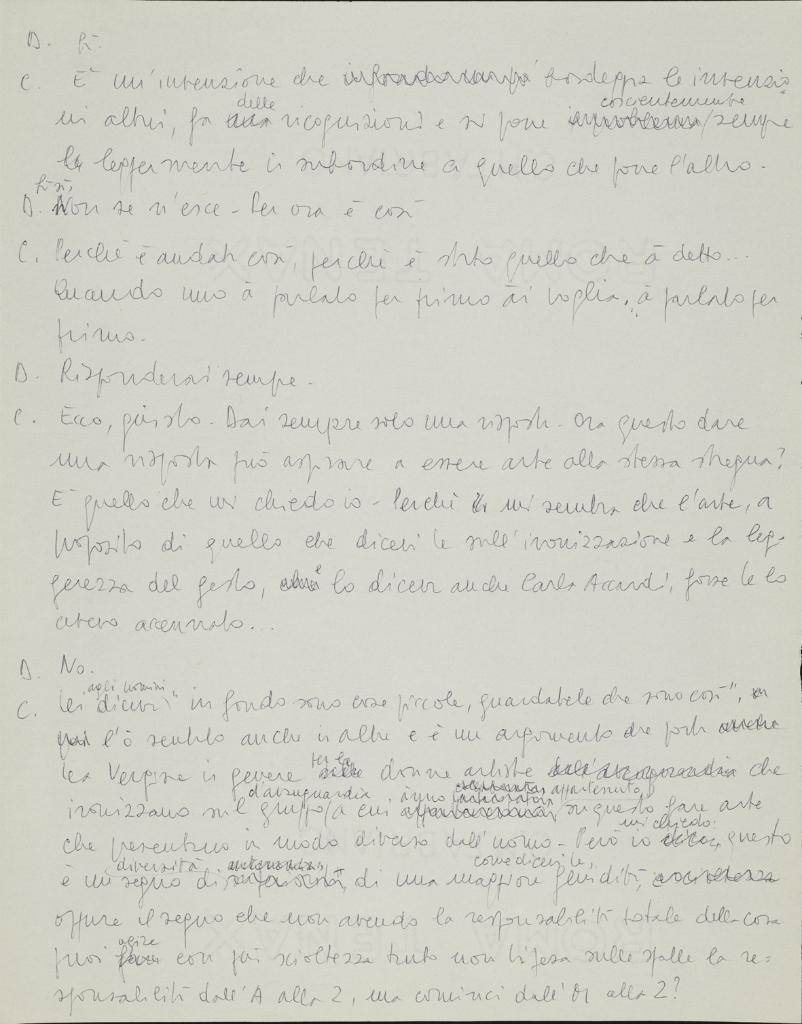 D. Sì.
C. È un'intenzione che bordeggia le intenzio
ni altrui, fa delle ricognizioni e si pone coscientemente / sempre
leggermente in subordine a quello che pone l'altro.
D. Sì sì, Non se n'esce - Per ora è così
C. Perché è andata così, perché è stato quello che à detto...
Quando uno à parlato per primo ài voglia, à parlato per
primo.
D. Risponderai sempre.
C. Ecco, giusto. Dai sempre solo una risposta. Ora questo dare
una risposta può aspirare a essere arte alla stessa stregua?
È quello che mi chiedo io - Perché mi sembra che l'arte, a
proposito di quello che dicevi te sull'ironizzazione e la leg-
gerezza del gesto, e lo diceva anche Carla Accardi, forse te lo
avevo accennato...
D. No.
C. Lei diceva agli uomini "in fondo sono cose piccole, guardatele che sono così",
l'ò sentito anche in altre e è un argomento che porta
Lea Vergine in genere per le donne artiste che
ironizzano sul gruppo d'avanguardia / a cui ànno appartenuto, su questo fare arte
che presentano in modo diverso dall'uomo - Però io mi chiedo: questo
è un segno di diversità, di una maggiore fluidità, come dicevi te,
oppure il segno che non avendo la responsabilità totale della cosa
puoi agire con più scioltezza tanto non ti pesa sulle spalle la re=
sponsabilità dall'A alla Z, ma cominci dall' alla Z?